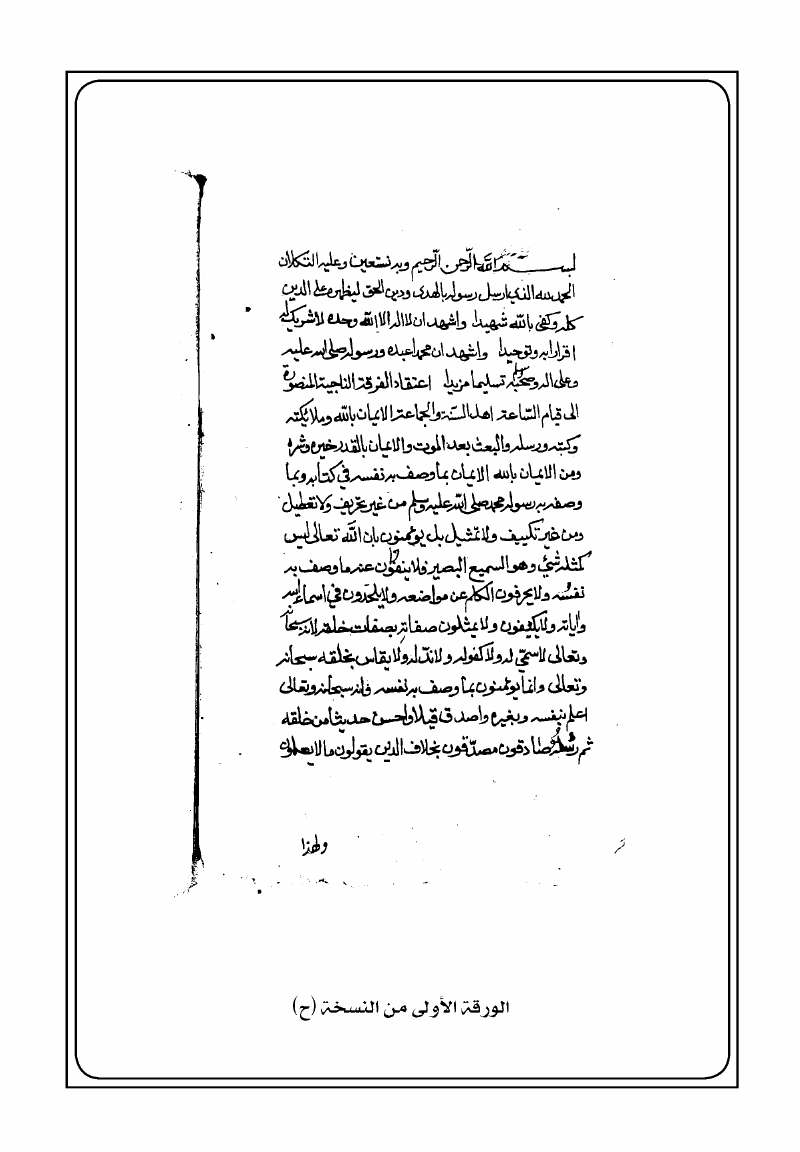 بسم الله الرحمن الرحيم وبه نستعين وعليه التكلان
الحمد لله الذي ارسل رسوله بالهدى ودين الحق ليظهره على الدين
كله وكفى بالله شهيدا واشهد ان لا اله الا الله وحده لا شريك له
اقرارا به وتوحيدا واشهد ان محمدا عبده ورسوله صلى الله عليه
وعلى اله وصحبه وسلم تسليما مزيدا اعتقاد الفرقة الناجية المنصورة
الى قيام الساعة اهل السنة والجماعة الايمان بالله وملائكته
وكتبه ورسله والبعث بعد الموت والايمان بالقدر خيره وشره
ومن الايمان بالله الايمان بما وصف به نفسه في كتابه وبما
وصفه به رسوله محمد صلى الله عليه وسلم من غير تحريف ولا تعطيل
ومن غير تكييف ولا تمثيل بل يؤمنون بان الله تعالى ليس
كمثله شيء وهو السميع البصير فلا ينفون عنه ما وصف به
نفسه ولا يحرفون الكلم عن مواضعه ولا يلحدون في اسماء الله
واياته ولا يكيفون ولا يمثلون صفاته بصفات خلقه لانه سبحانه
وتعالى لا سمي له ولا كفو له ولا ند له ولا يقاس بخلقه سبحانه
وتعالى وانما يؤمنون بما وصف به نفسه فانه سبحانه وتعالى
اعلم بنفسه وبغيره واصدق قيلا واحسن حديثا من خلقه
ثم رسله صادقون مصدقون بخلاف الذين يقولون ما لا يعلمون
ولهذا
الورقة الأولى من النسخة (ح)